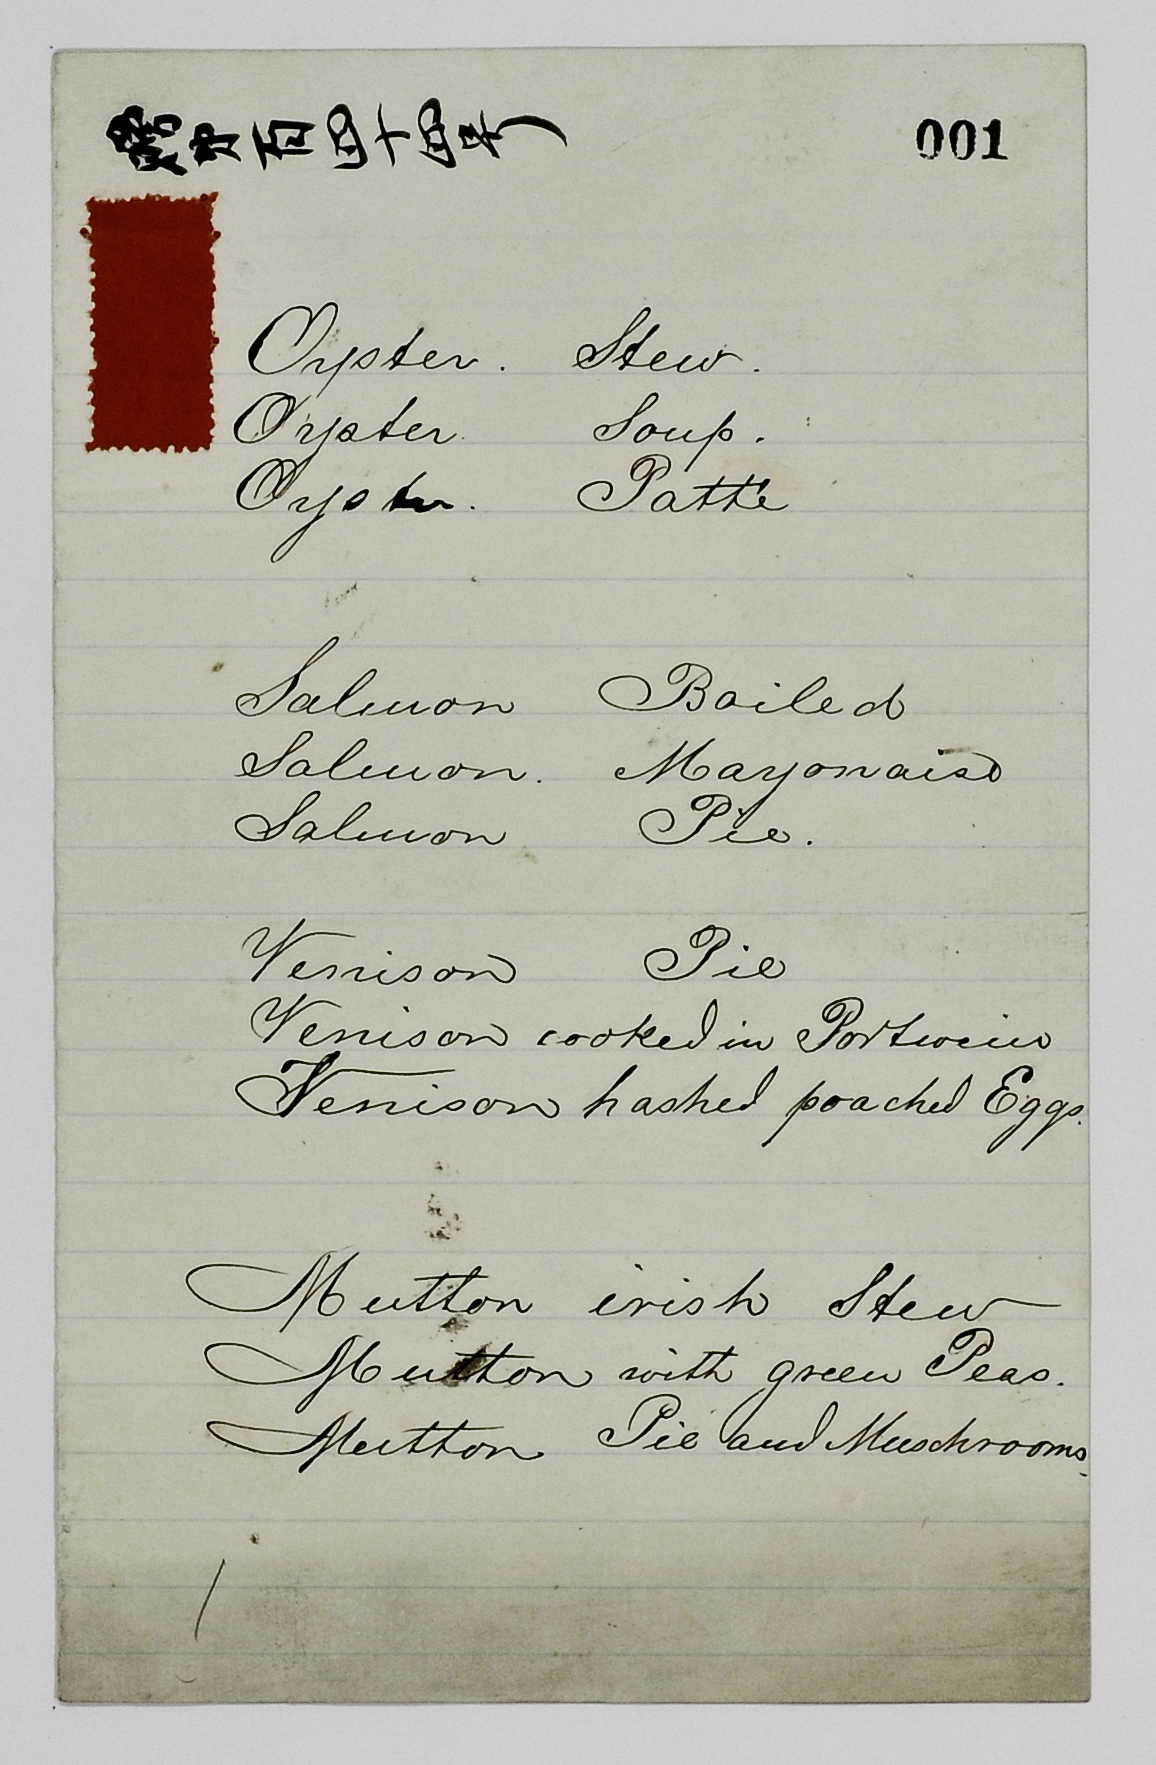 百四十四
001
Oyster. Stew.
Oyster Soup.
Oyster. Patté
Salmon Boiled
Salmon. Mayonaise
Salmon Pie.
Venison Pie
Venison cooked in Portwein
Venison hashed poached Eggs.
Mutton irish Stew
Mutton with green Peas.
Mutton Pie and Muschrooms.